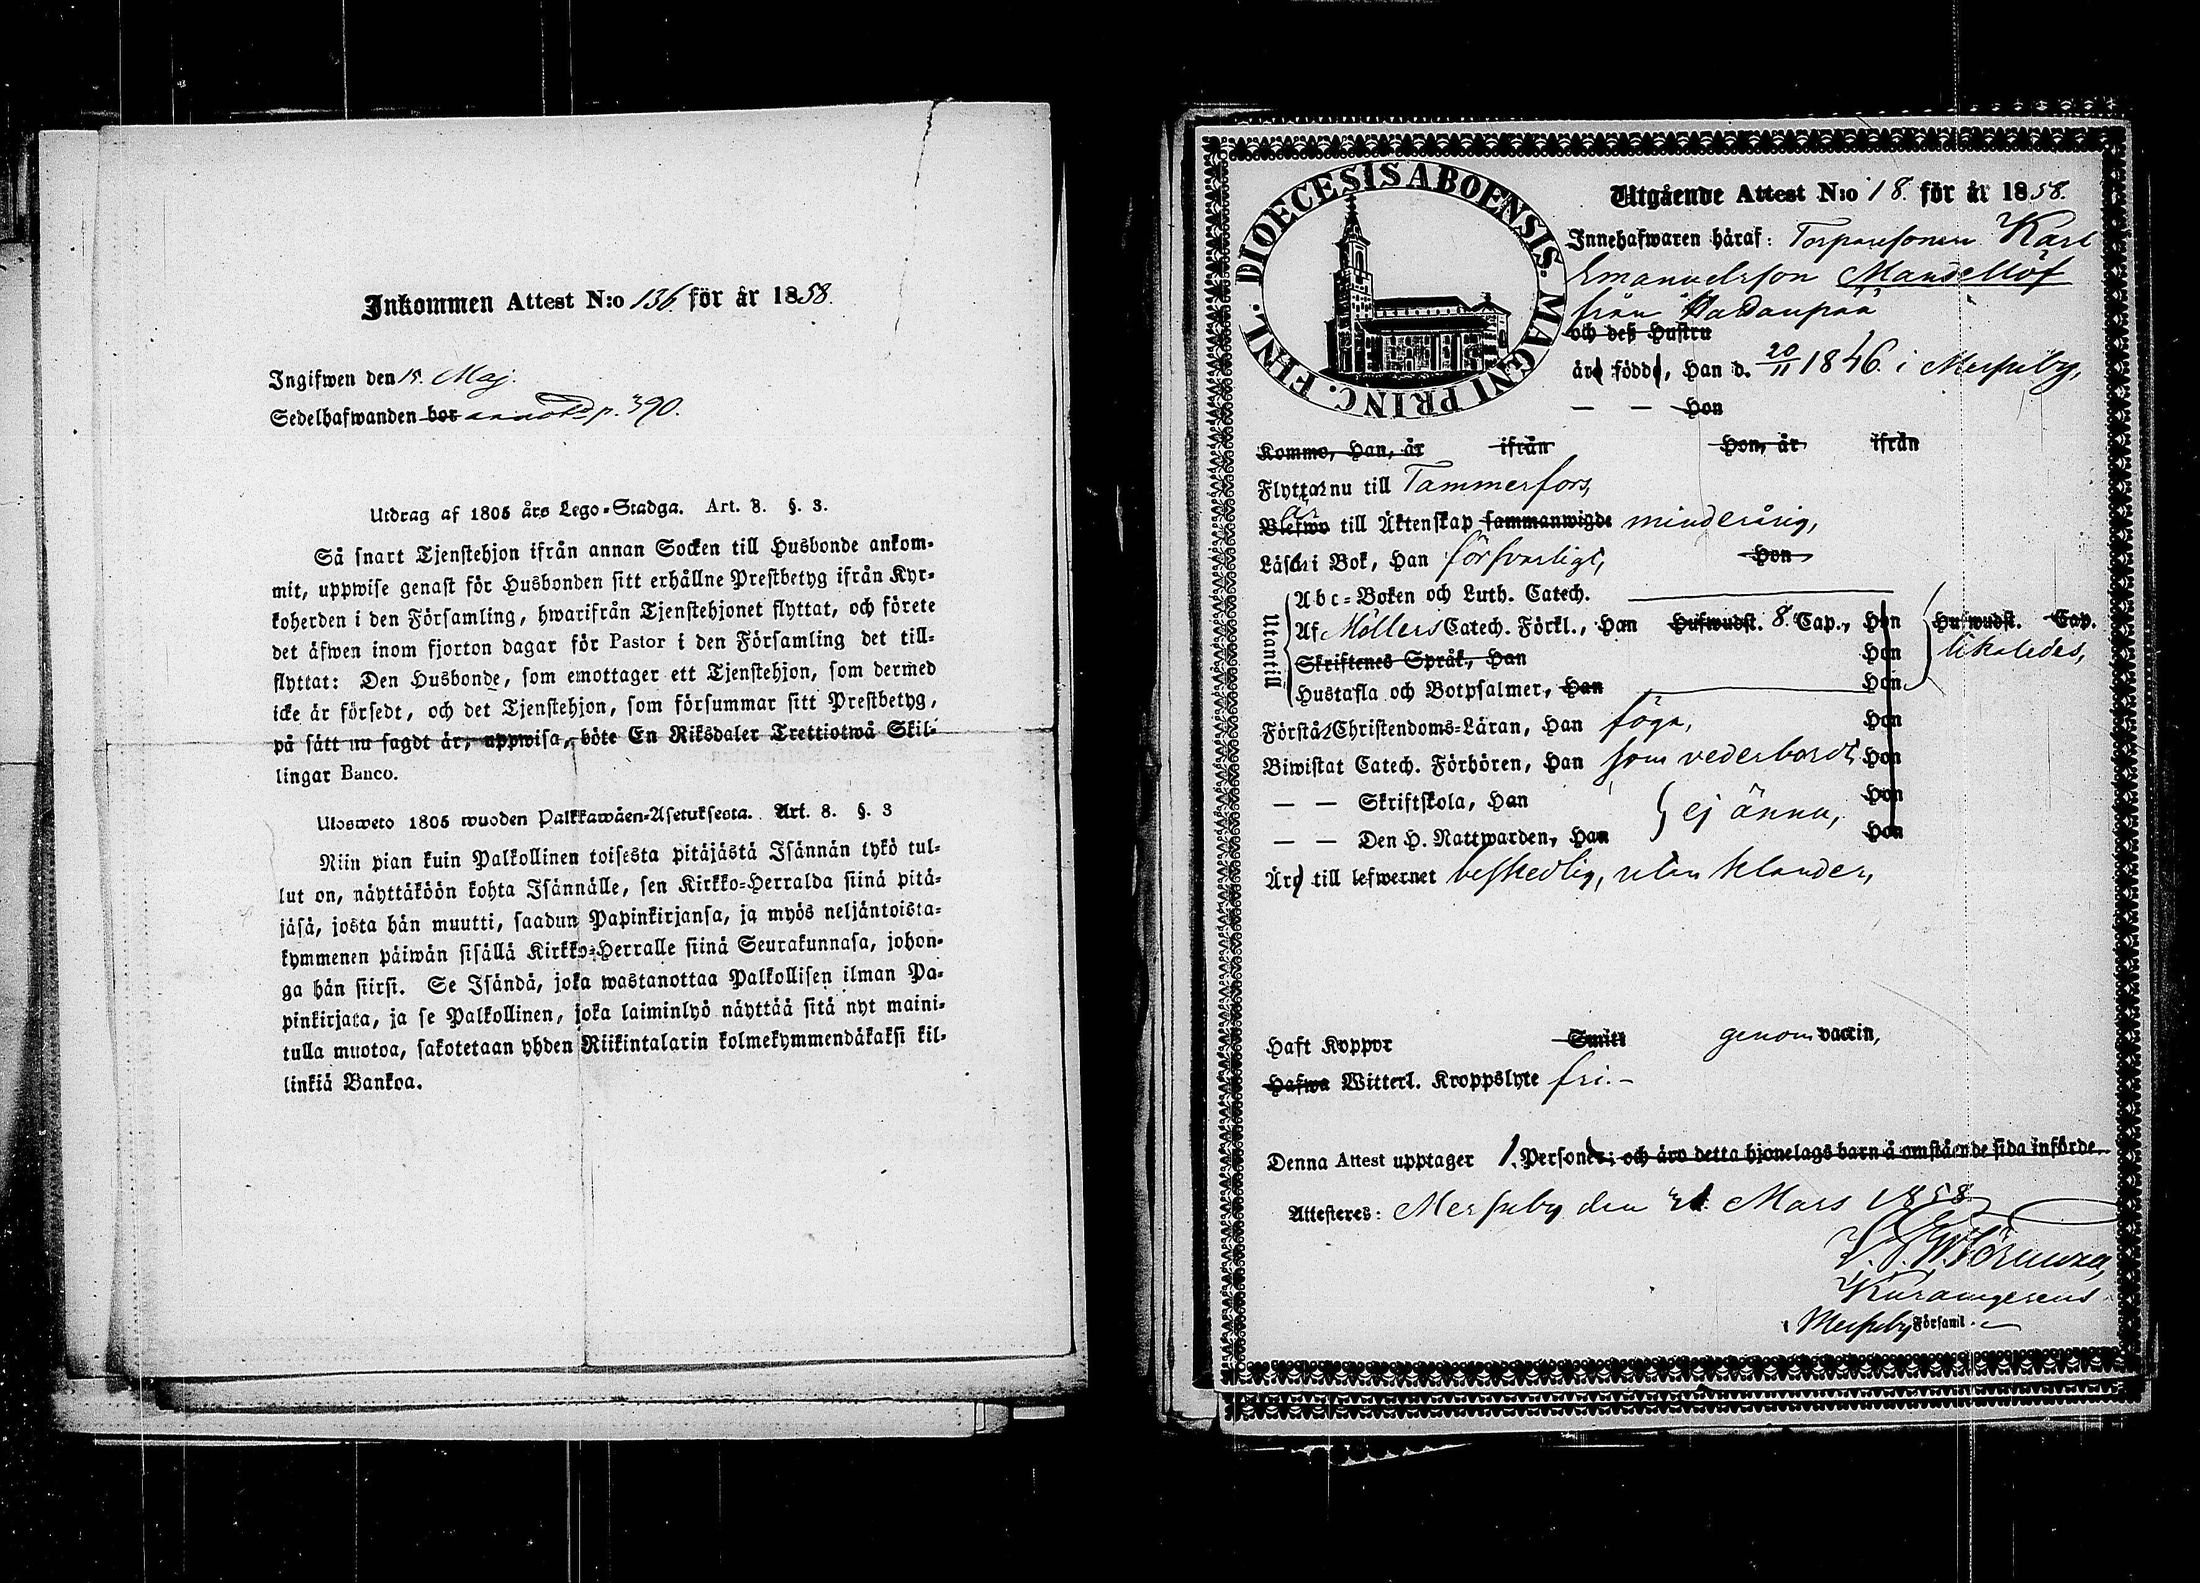 Inkommen Attest N:o 136 för år 1858.
Ingifwen den 15. Maj.
Sedelhafwanden bor annot. p. 390.
Utdrag af 1805 års Lego-Stadga. Art. 8. §. 3.
Så snart Tjenstehjon ifrån annan Socken till Husbonde ankom-
mit, uppwise genast för Husbonden sitt erhållne Prestbetyg ifrån Kyr-
koherden i den Församling, hwarifrån Tjenstehjonet flyttat, och förete
det äfwen inom fjorton dagar för Pastor i den Församling det till-
flyttat: Den Husbonde, som emottager ett Tjenstehjon, som dermed
icke är försedt, och det Tjenstehjon, som försummar sitt Prestbetyg,
på sätt nu sagdt är, uppwisa, böte En Riksdaler Trettiotwå Skil-
lingar Banco.
Ulosweto 1805 wuoden Palkkawäen-Asetuksesta. Art. 8. §. 3
Niin pian kuin Palkollinen toisesta pitäjästä Isännän tykö tul-
lut on, näyttäköön kohta Isännälle, sen Kirkko-Herralda siinä pitä-
jäsä, josta hän muutti, saadun Papinkirjansa, ja myös neljäntoista-
kymmenen päiwän sisällä Kirkko-Herralle siinä Seurakunnasa, johon-
ga hän siirsi. Se Isändä, joka wastanottaa Palkollisen ilman Pa-
pinkirjata, ja se Palkollinen, joka laiminlyö näyttää sitä nyt maini-
tulla muotoa, sakotetaan yhden Riikintalarin kolmekymmendäkaksi kil-
linkiä Bankoa.
DIOECESIS ABOENSIS. MAGNI PRINC. FINL.
Utgående Attest N:o 18. för år 1858.
Innehafwaren häraf: Torparesonen Karl
Emanuelsson Mandellöf
från
och deß Hustru
äro födde, Han d. 20/11 1846. i Merheby,
— — Hon
Kommo, Han, år ifrån Hon, år ifrån
Flyttar nu till Tammerfors,
Blefwo är till Äktenskap sammanwigde minderårig,
Läser i Bok, Han försvarligt, Hon
Utantill
Abc-Boken och Luth. Catech.
Af Möllers Catech. Förkl., Han Hufwudst. 8. Cap., Hon Hufwudst. Cap.
Skriftenes Språk, Han Hon likaledes,
Hustafla och Botpsalmer, Han Hon
Förstår Christendoms-Läran, Han föga, Hon
Biwistat Catech. Förhören, Han som vederbordt, Hon
— — Skriftskola, Han ej ännu, Hon
— — Den H. Nattwarden, Han Hon
Äro till lefwernet beskedlig, utan klander,
Haft Koppor Smitt genom vaccin,
Hafwa Witterl. Kroppslyte fri.-
Denna Attest upptager 1. Personer; och äro detta hjonelags barn å omstående sida införde.
Attesteres: Merheby den 31 Mars 1858
i Merheby Församl.